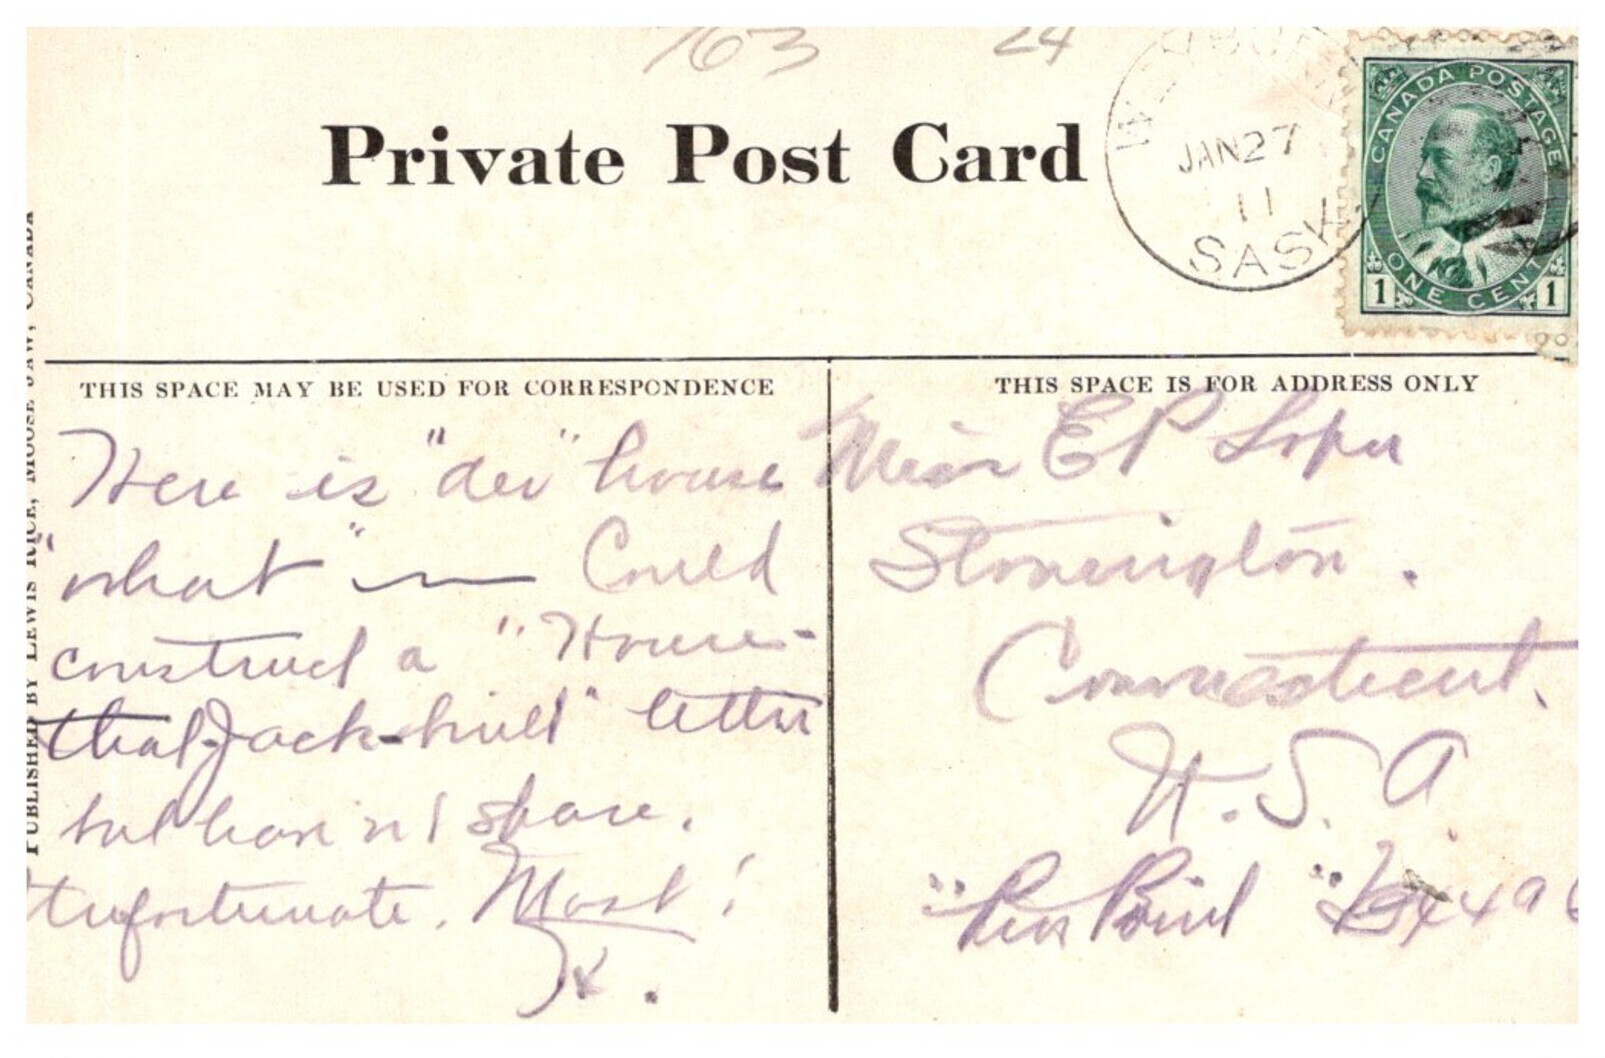 763 24
Private Post Card
WEYBURN
JAN 27
11
SASK
CANADA POSTAGE
ONE CENT
1 1
PUBLISHED BY LEWIS RICE, MOOSE JAW, CANADA
THIS SPACE MAY BE USED FOR CORRESPONDENCE
Here is "dei" house
"what" — Could
construct a "House-
that-Jack-built" letter
but haven't space.
Unfortunate. Most!
THIS SPACE IS FOR ADDRESS ONLY
Miss E P Loper
Stonington.
Connecticut.
U. S. A
"Pen Point" Box 49